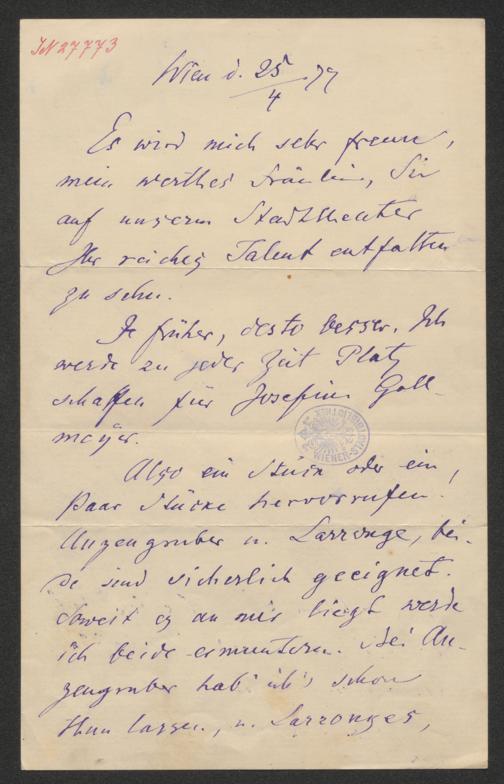 IN 27773
Wien d. 25/4 79
Es wird mich sehr freuen,
mein werthes Fräulein, Sie
auf unserem Stadttheater
Ihr reiches Talent entfalten
zu sehen.
Je früher, desto besser. Ich
werde zu jeder Zeit Platz
schaffen für Josefine Gall-
meyer.
Also ein Stück oder ein
Paar Stücke hervorrufen!
Anzengruber u. Larronge, bei-
de sind sicherlich geeignet.
Soweit es an mir liegt werde
ich beide ermuntern. Bei An-
zengruber hab' ich's schon
thun lassen, u. Larronges,